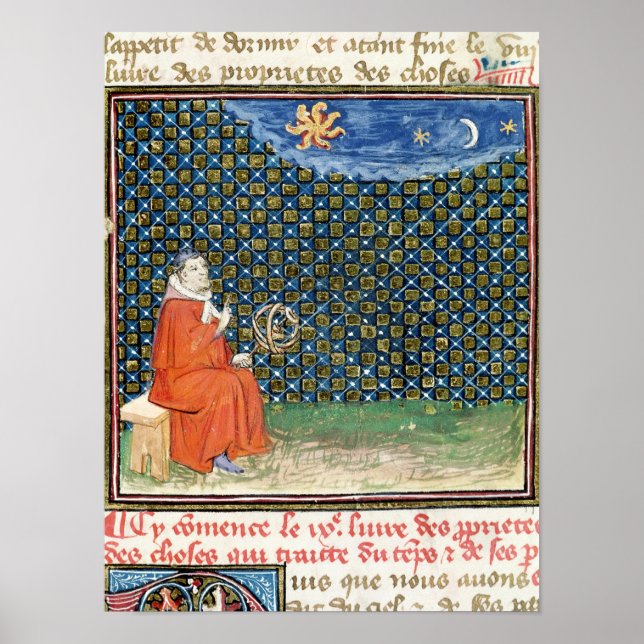 lappetit de dormir et atant fine le viii
liure des proprietes des choses
Cy comence le ixe. liure des proprietes
des choses qui traitte du teps & de ses p
uis que nous auons
dit du ciel & de ses pa